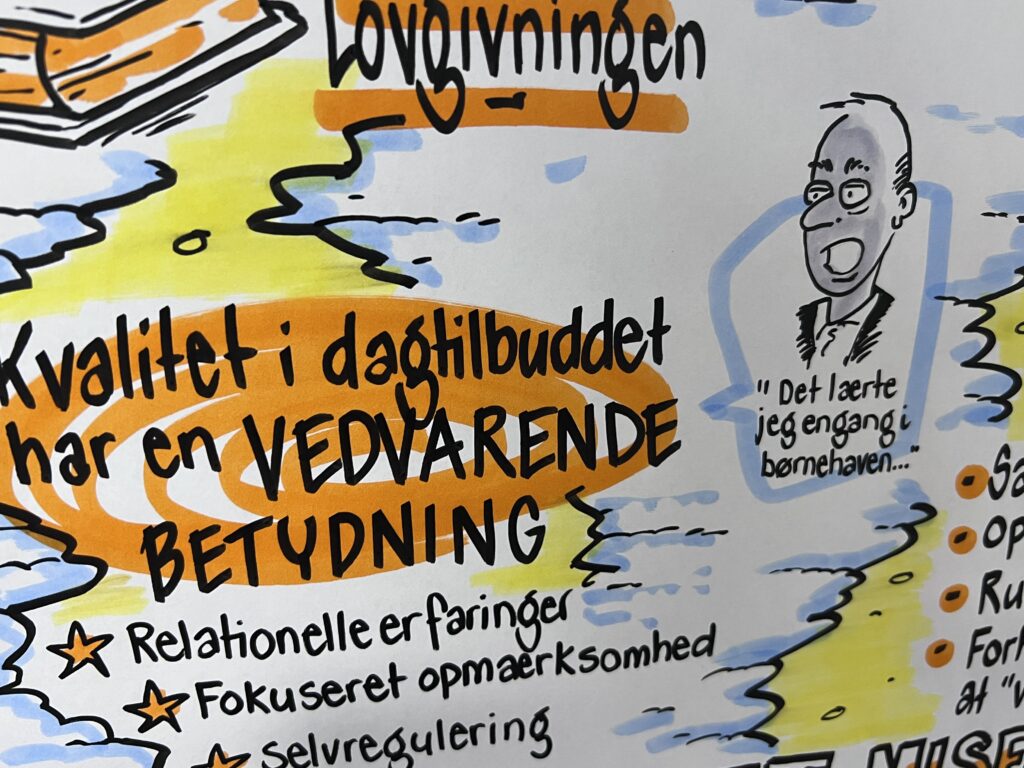 Lovgivningen
Kvalitet i dagtilbuddet
har en VEDVARENDE
BETYDNING
Relationelle erfaringer
Fokuseret opmærksomhed
Selvregulering
"Det lærte
jeg engang i
børnehaven..."